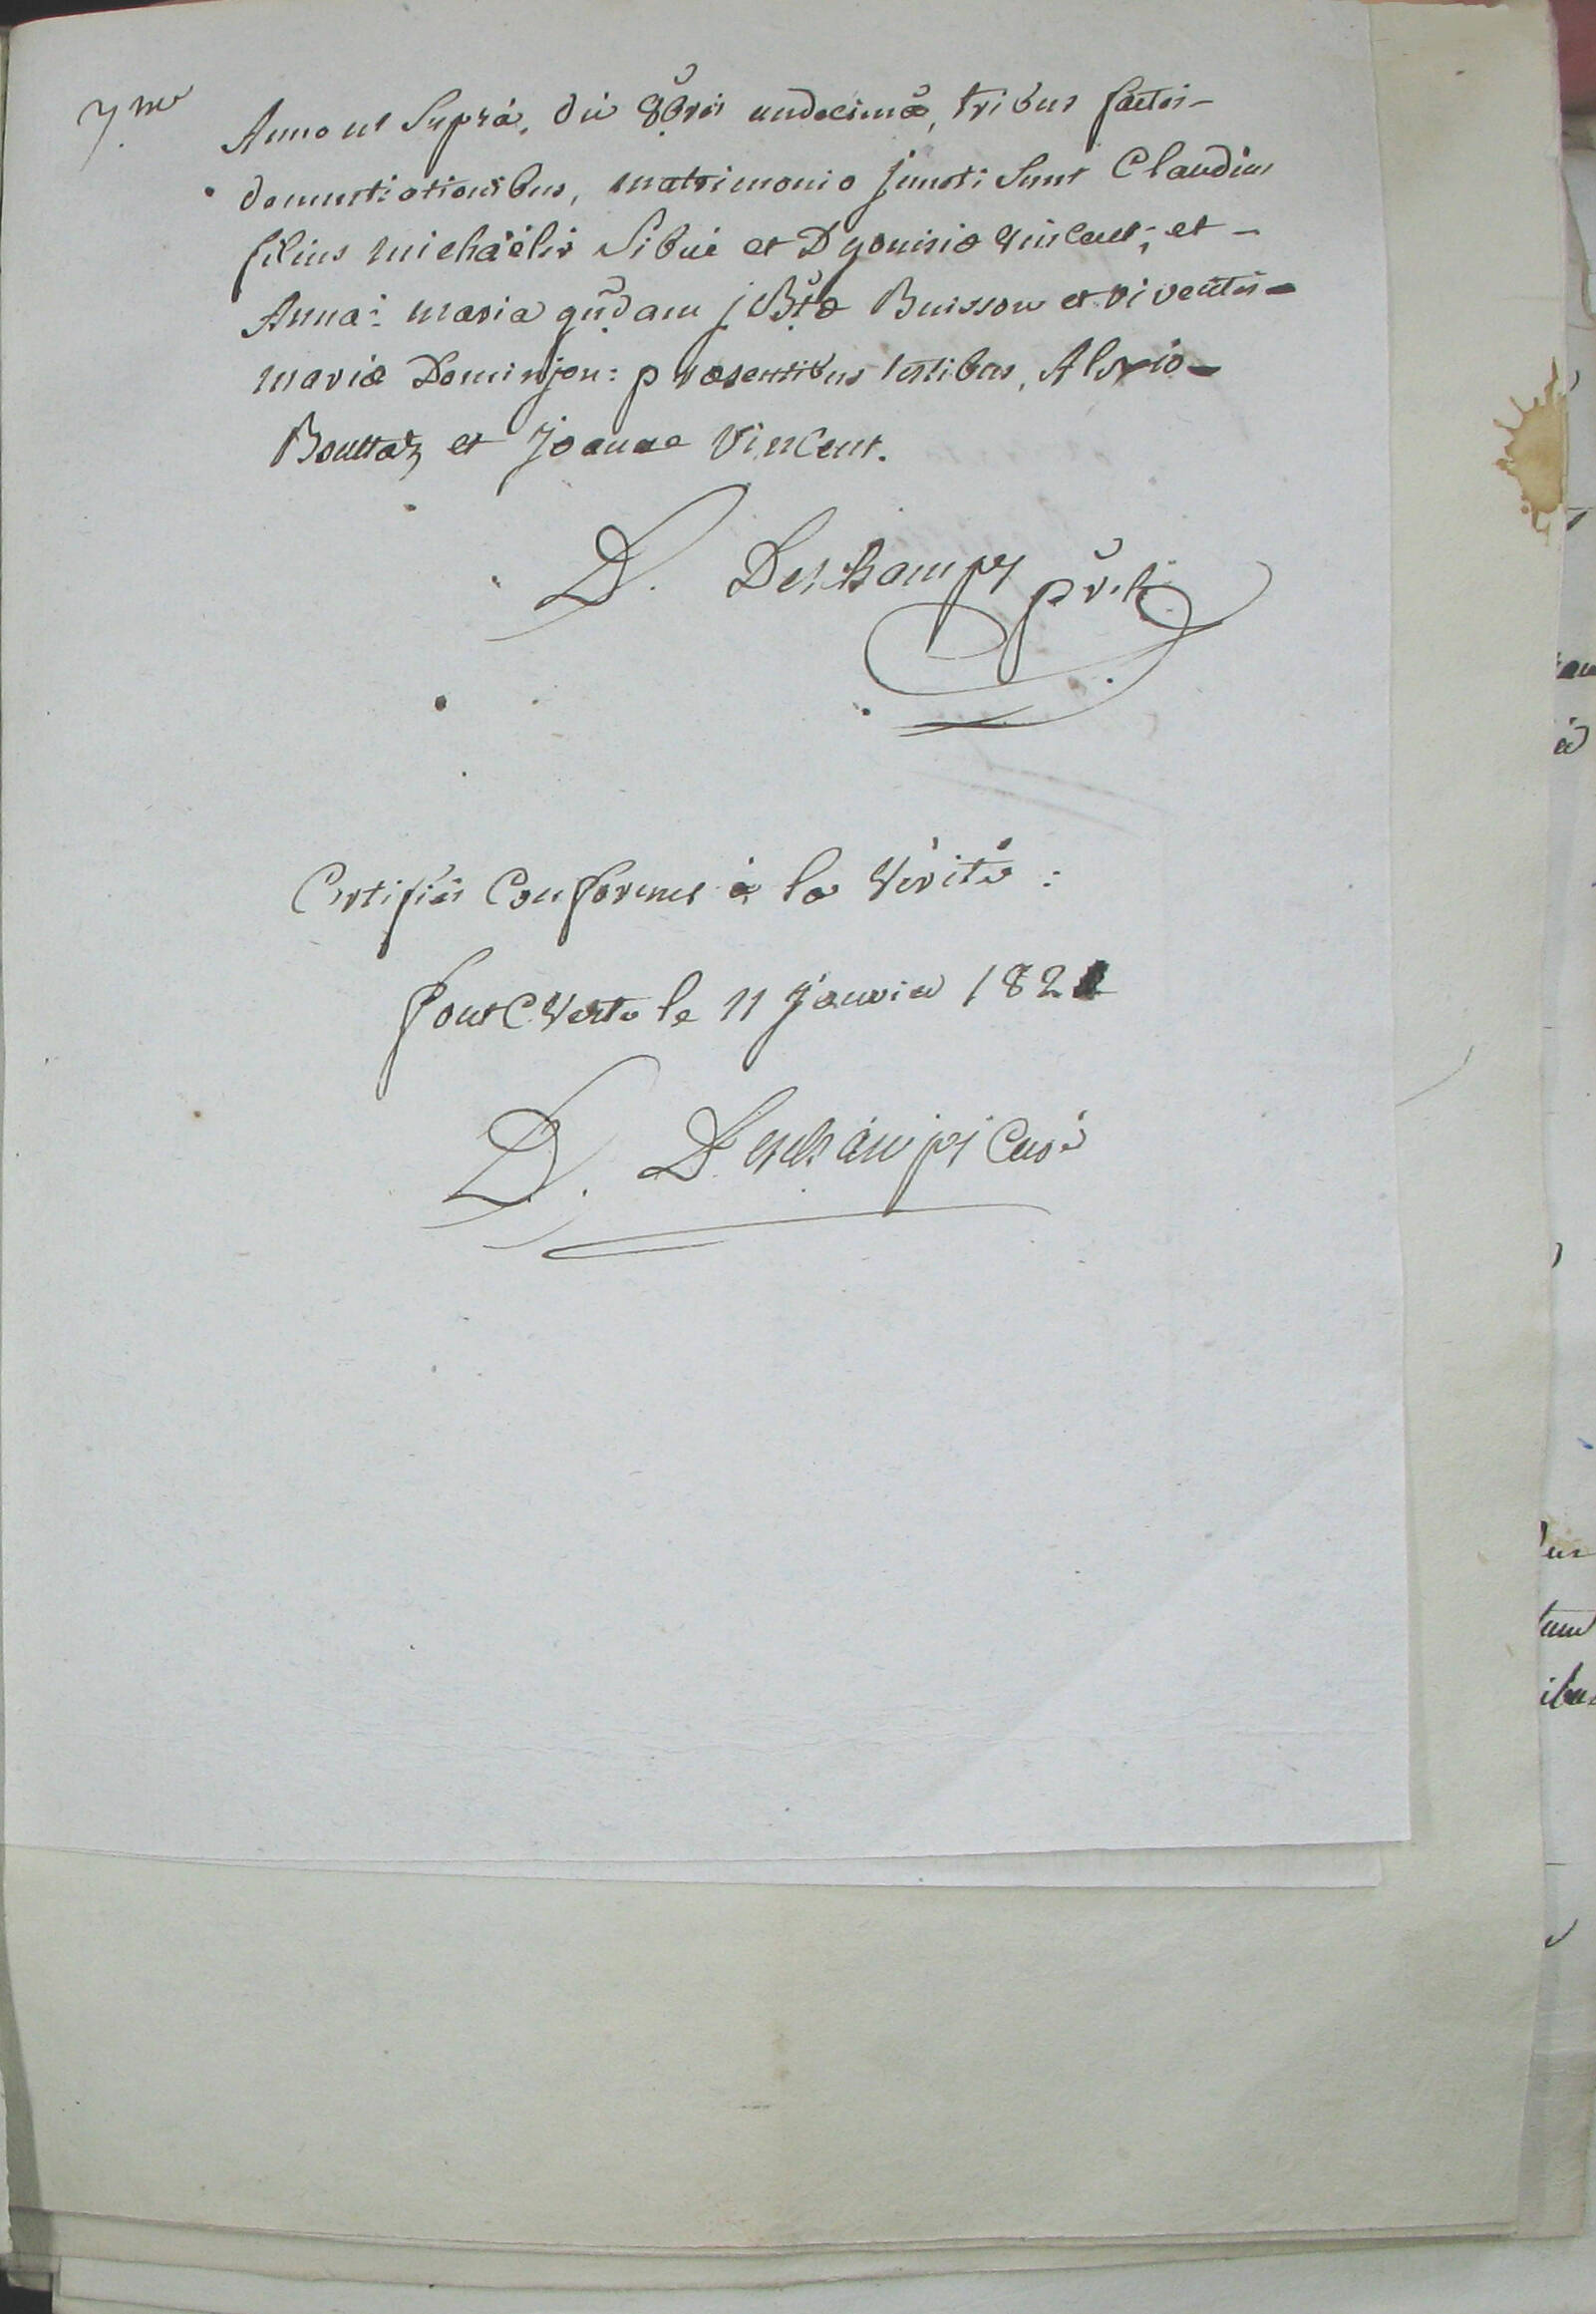 7.me
Anno ut Suprà, die 8bris undecimâ, tribus factis-
denuntiationibus, matrimonio juncti Sunt Claudius
filius michaëlis Sibué et Dyonisiæ Vincent; et-
Anna: maria qũdam jBtæ Buisson et viventis-
mariæ Dominjon: præsentibus testibus, Alexio-
Bouttaz et Joanne Vincent.
D. Deschamps prĩ
Certifiés Conformes à la Vérité:
fontC.Verte le 11 Janvier 1821
D. Deschamps Curé